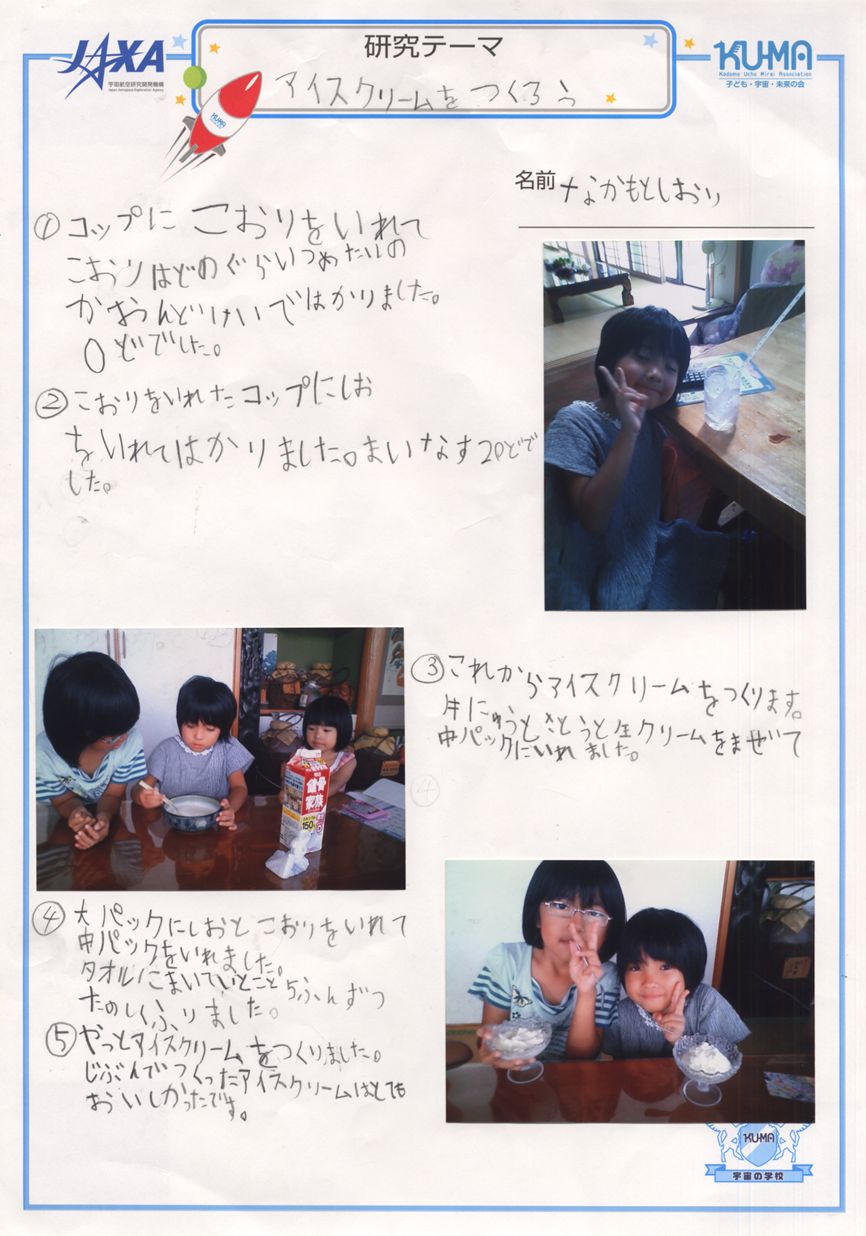 JAXA
宇宙航空研究開発機構
Japan Aerospace Exploration Agency
研究テーマ
アイスクリームをつくろう
KUMA
KU-MA
Kodomo Uchu Mirai Association
子ども・宇宙・未来の会
名前 なかもとしおり
① コップに こおりをいれて
こおりはどのぐらいつめたいの
かおんどけいではかりました。
0どでした。
② こおりをいれたコップにしお
をいれてはかりました。まいなす20どで
した。
健骨
家族
150
③ これからアイスクリームをつくります。
牛にゅうとさとうと生クリームをまぜて
中パックにいれました。
④
④ 大パックにしおとこおりをいれて
中パックをいれました。
タオルにまいていとこと5ふんずつ
たのしくふりました。
⑤ やっとアイスクリームをつくりました。
じぶんでつくったアイスクリームはとても
おいしかったです。
KU-MA
宇宙の学校